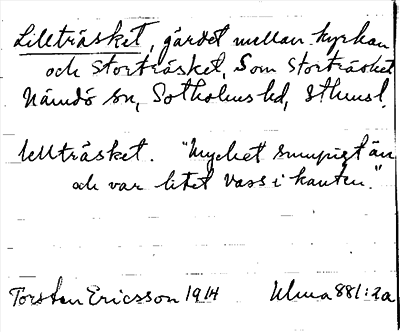 Lillträsket, gärdet mellan kyrkan
och Storträsket. Som Storträsket
Nämdö sn, Sotholms hd, Sthmsl.
lillträsket. "Mycket sumpigt än
och var litet vass i kanten."
Torsten Ericsson 1914 Ulma 881:2a